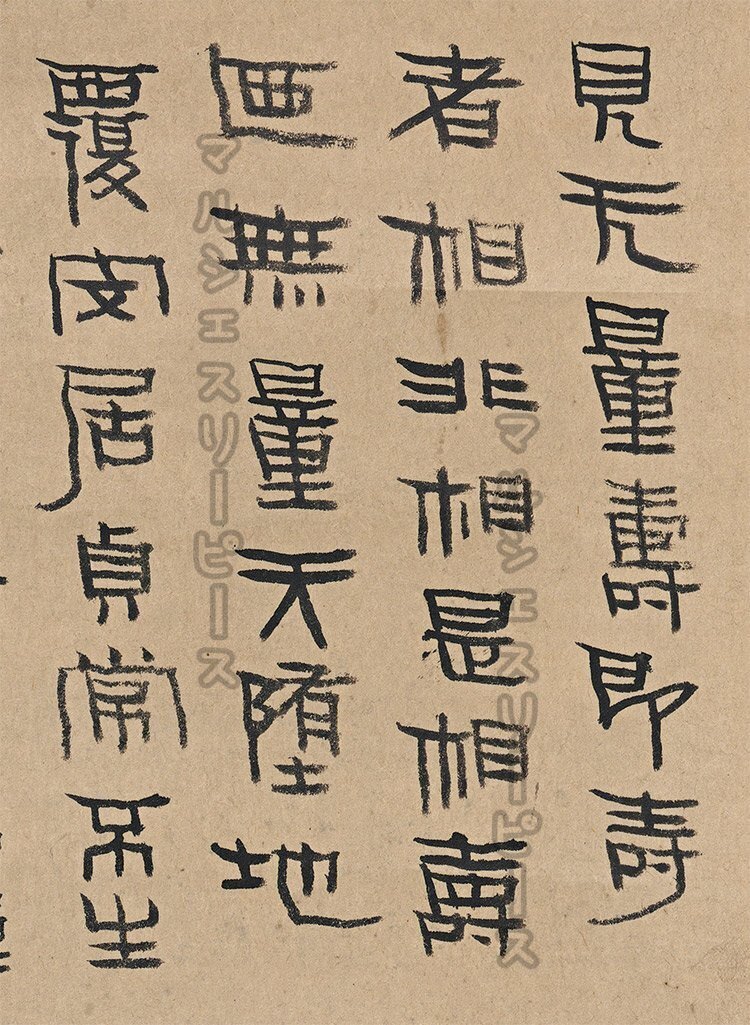 見无量壽即寿
者相非相是相壽
無量天堕地
覆居貞常不生
マルシェスリーピース
マルシェスリーピース